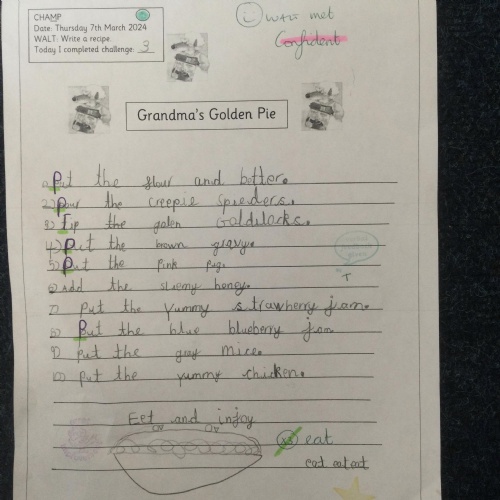 CHAMP
Date: Thursday 7th March 2024
WALT: Write a recipe.
Today I completed challenge: 3
WALT met
Confident
Grandma's Golden Pie
1) Put the flour and botter.
2) Pour the creepie spieders.
3) Tip the golen Goldilocks.
4) Put the brown gravy.
5) Put the Pink Pugs
6) Add the sliemy honey.
7) Put the yummy strawberry jam.
8) Put the blue blueberry jam
9) put the gray mice.
10) Put the yummy chicken.
Eet and injoy
x3 eat
eat eat eat
T